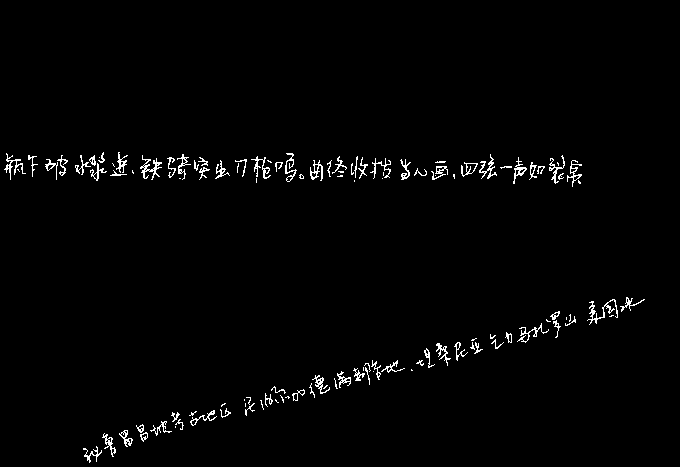 瓶乍破水浆迸,铁骑突出刀枪鸣。曲终收拨当心画,四弦一声如裂帛
秘鲁昌昌城考古地区 尼泊尔加德满都谷地、坦桑尼亚乞力马扎罗山 美国冰